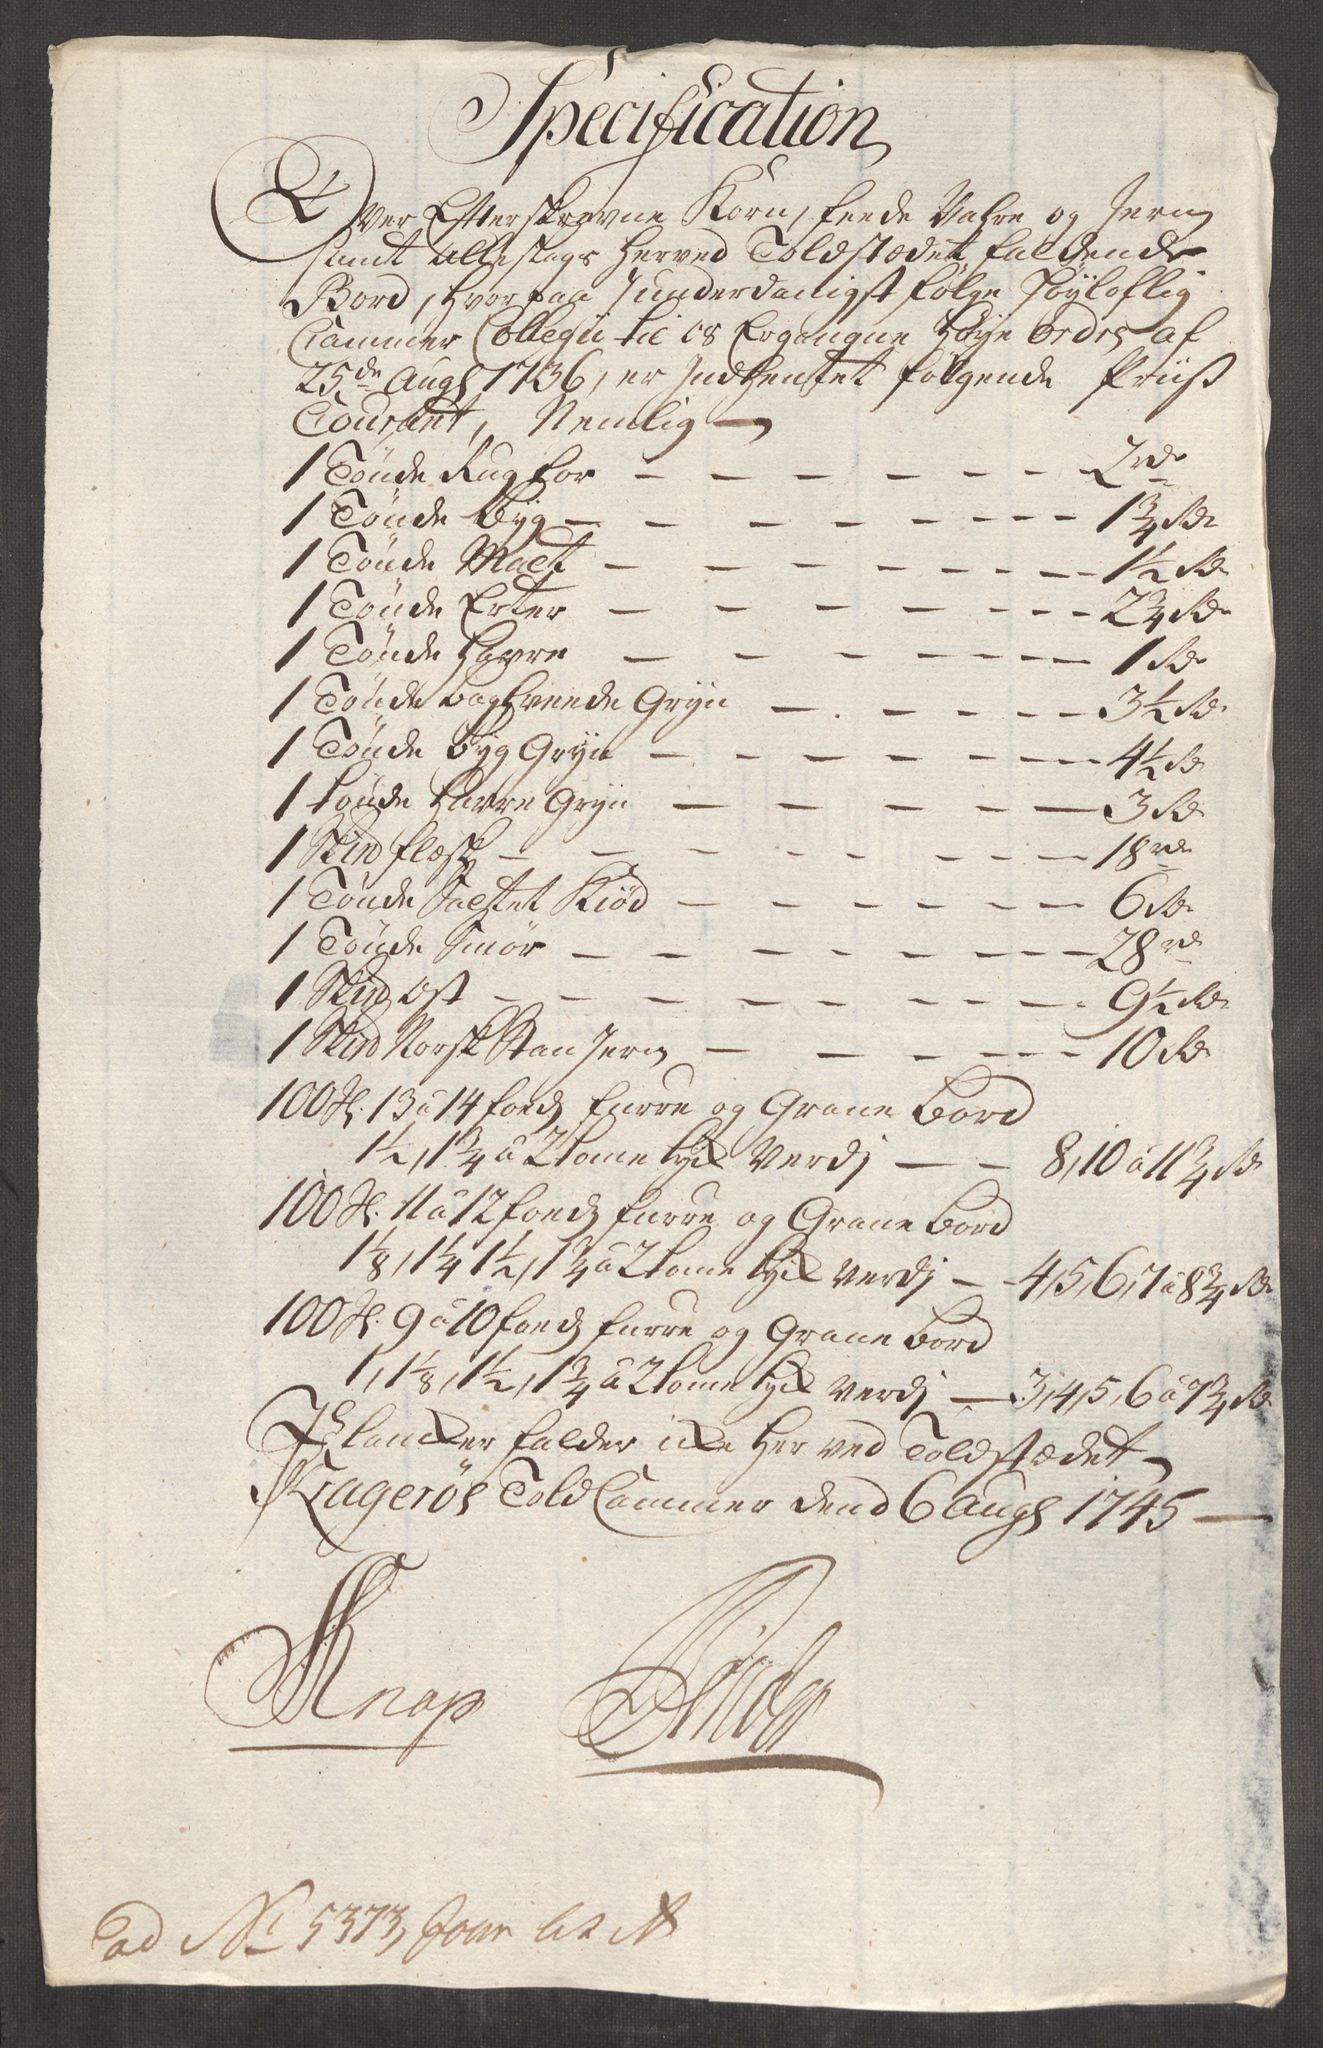 Specification
Over Efterskrevne Korn, feede Vahre og Jern
samt Alleslags herved Toldstædet faldende
Bord, hvorpaa J underdanigst følge Høyloflig
Cammer Collegii til os Ergangne høye Ordre af
25de Aug: 1736, er Jndhentet følgende Priis
Courant, Nemlig
1 Tønde Rug for — — — — — — 2 rd
1 Tønde Byg — — — — — — 1 3/4 Rd
1 Tønde Malt — — — — — — 1 1/2 Rd
1 Tønde Erter — — — — — — 2 3/4 Rd
1 Tønde Havre — — — — — — 1 Rd
1 Tønde Boghveede Gryn — — — — 3 1/2 Rd
1 Tønde Byg Gryn — — — — — 4 1/2 Rd
1 tønde Havre Gryn — — — — — 3 Rd
1 Skud flesk — — — — — — 18 rd
1 Tønde Saltet Kiød — — — — — 6 Rd
1 Tønde Smør — — — — — — 28 rd
1 Skud Ost — — — — — — 9 1/2 Rd
1 Skud Norsk Stan Jern — — — — 10 Rd
100 st. 13 a 14 foeds furre og Grane Bord
1 1/2, 1 3/4 a 2 tome tyk Verdj — — 8, 10 a 11 3/4 Rd
100 st. 11 a 12 foeds furre og Grane Bord
1 1/8, 1 1/4 1 1/2, 1 3/4 a 2 tome tyk Verdj — 4, 5, 6, 7 a 8 3/4 Rd
100 st. 9 a 10 foeds furre og Grane Bord
1, 1 1/8, 1 1/2, 1 3/4 a 2 tome tyk Verdj — 3, 4, 5, 6 a 7 3/4 Rd
falder icke her ved Toldstædet
Kragerøe Told Cammer dend 6 Aug: 1745 —
Knap
ad No 5373, Jour